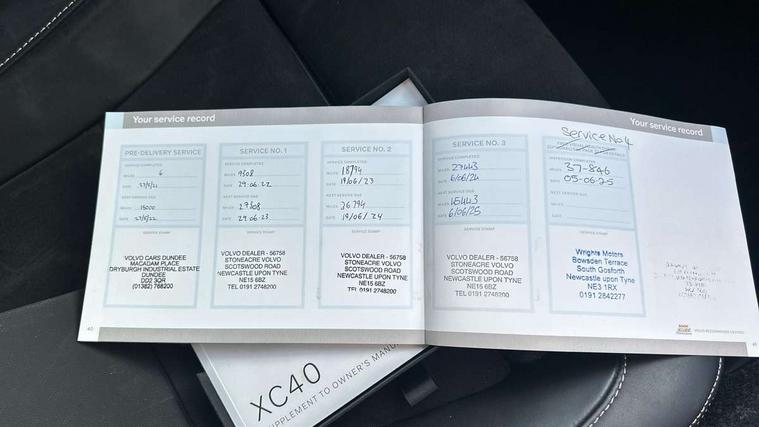 Your service record
PRE-DELIVERY SERVICE
SERVICE COMPLETED
MILES 6
DATE
NEXT SERVICE DUE
MILES 15000
DATE
SERVICE STAMP
VOLVO CARS DUNDEE
MACADAM PLACE
DRYBURGH INDUSTRIAL ESTATE
DUNDEE
DD2 3QR
(01382) 768200
SERVICE NO. 1
SERVICE COMPLETED
MILES 9308
DATE 29.06.22
NEXT SERVICE DUE
MILES 27308
DATE 29.06.23
SERVICE STAMP
VOLVO DEALER - 56758
STONEACRE VOLVO
SCOTSWOOD ROAD
NEWCASTLE UPON TYNE
NE15 6BZ
TEL 0191 2748200
SERVICE NO. 2
SERVICE COMPLETED
MILES 18794
DATE 19/06/23
NEXT SERVICE DUE
MILES 36794
DATE 19/06/24
SERVICE STAMP
VOLVO DEALER - 56758
STONEACRE VOLVO
SCOTSWOOD ROAD
NEWCASTLE UPON TYNE
NE15 6BZ
TEL 0191 2748200
40
Your service record
SERVICE NO. 3
SERVICE COMPLETED
MILES 27443
DATE 6/06/24
NEXT SERVICE DUE
MILES 45443
DATE 6/06/25
SERVICE STAMP
VOLVO DEALER - 56758
STONEACRE VOLVO
SCOTSWOOD ROAD
NEWCASTLE UPON TYNE
NE15 6BZ
TEL 0191 2748200
Service No 4
INSPECTION COMPLETED
MILES 37-846
DATE 05-06-25
NEXT SERVICE DUE
MILES
DATE
SERVICE STAMP
Wrights Motors
Bowsden Terrace
South Gosforth
Newcastle upon Tyne
NE3 1RX
0191 2842277
XC40
SUPPLEMENT TO OWNER'S MANUAL